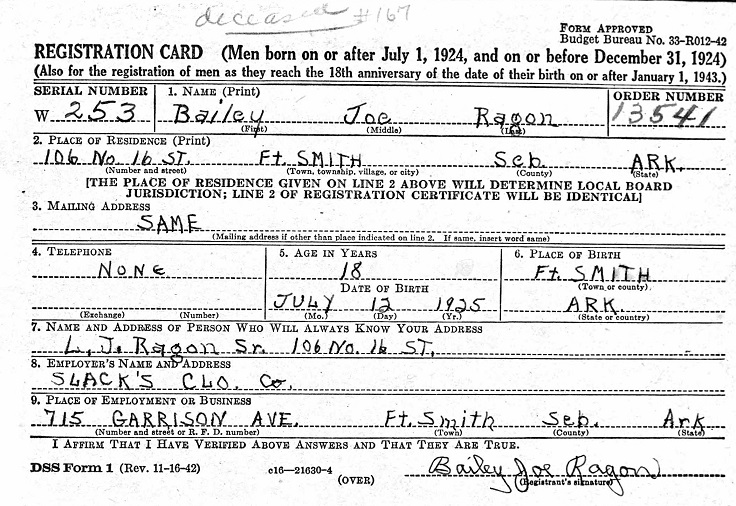 deceased #167
FORM APPROVED
Budget Bureau No. 33-R012-42
REGISTRATION CARD (Men born on or after July 1, 1924, and on or before December 31, 1924)
(Also for the registration of men as they reach the 18th anniversary of the date of their birth on or after January 1, 1943.)
SERIAL NUMBER 1. NAME (Print) ORDER NUMBER
W 253 Bailey Joe Ragon 13541
(First) (Middle) (Last)
2. PLACE OF RESIDENCE (Print)
106 No. 16 ST. Ft. SMITH Seb. ARK.
(Number and street) (Town, township, village, or city) (County) (State)
[THE PLACE OF RESIDENCE GIVEN ON LINE 2 ABOVE WILL DETERMINE LOCAL BOARD
JURISDICTION; LINE 2 OF REGISTRATION CERTIFICATE WILL BE IDENTICAL]
3. MAILING ADDRESS
SAME
(Mailing address if other than place indicated on line 2. If same, insert word same)
4. TELEPHONE 5. AGE IN YEARS 6. PLACE OF BIRTH
NONE 18 Ft. SMITH
DATE OF BIRTH (Town or county)
JULY 12 1925 ARK.
(Exchange) (Number) (Mo.) (Day) (Yr.) (State or country)
7. NAME AND ADDRESS OF PERSON WHO WILL ALWAYS KNOW YOUR ADDRESS
L. J. Ragon Sr. 106 No. 16 ST.
8. EMPLOYER'S NAME AND ADDRESS
SLACK'S CLO. Co.
9. PLACE OF EMPLOYMENT OR BUSINESS
715 GARRISON AVE. Ft. Smith Seb. Ark
(Number and street or R. F. D. number) (Town) (County) (State)
I AFFIRM THAT I HAVE VERIFIED ABOVE ANSWERS AND THAT THEY ARE TRUE.
DSS Form 1 (Rev. 11-16-42) c16—21630-4 Bailey Joe Ragon
(OVER) (Registrant's signature)